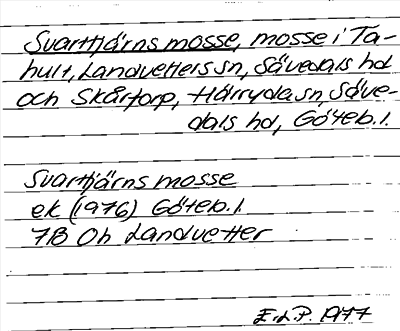 Svarttjärns mosse, mosse i Ta-
hult, Landvetters sn, Sävedals hd
och Skårtorp, Härryda sn, Säve-
dals hd, Göteb. l.
Svarttjärns mosse
ek (1976) Göteb. l.
7B Oh Landvetter
E.L.P. 1977